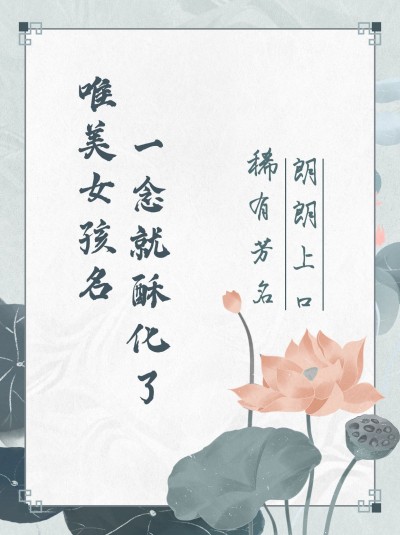 唯美女孩名
一念就酥化了
朗朗上口
稀有芳名